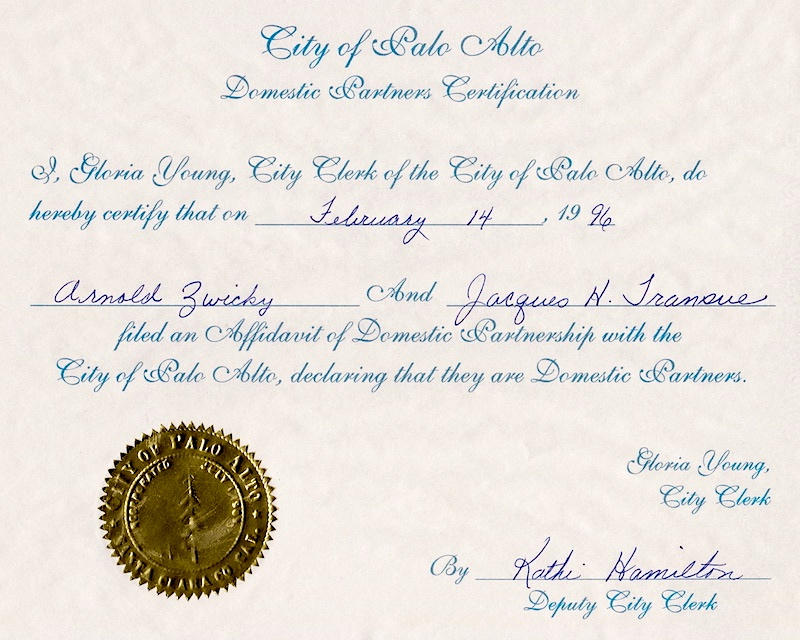 City of Palo Alto
Domestic Partners Certification
I, Gloria Young, City Clerk of the City of Palo Alto, do
hereby certify that on February 14, 1996
Arnold Zwicky And Jacques H. Transue
filed an Affidavit of Domestic Partnership with the
City of Palo Alto, declaring that they are Domestic Partners.
CITY OF PALO ALTO
Gloria Young,
City Clerk
By Kathi Hamilton
Deputy City Clerk